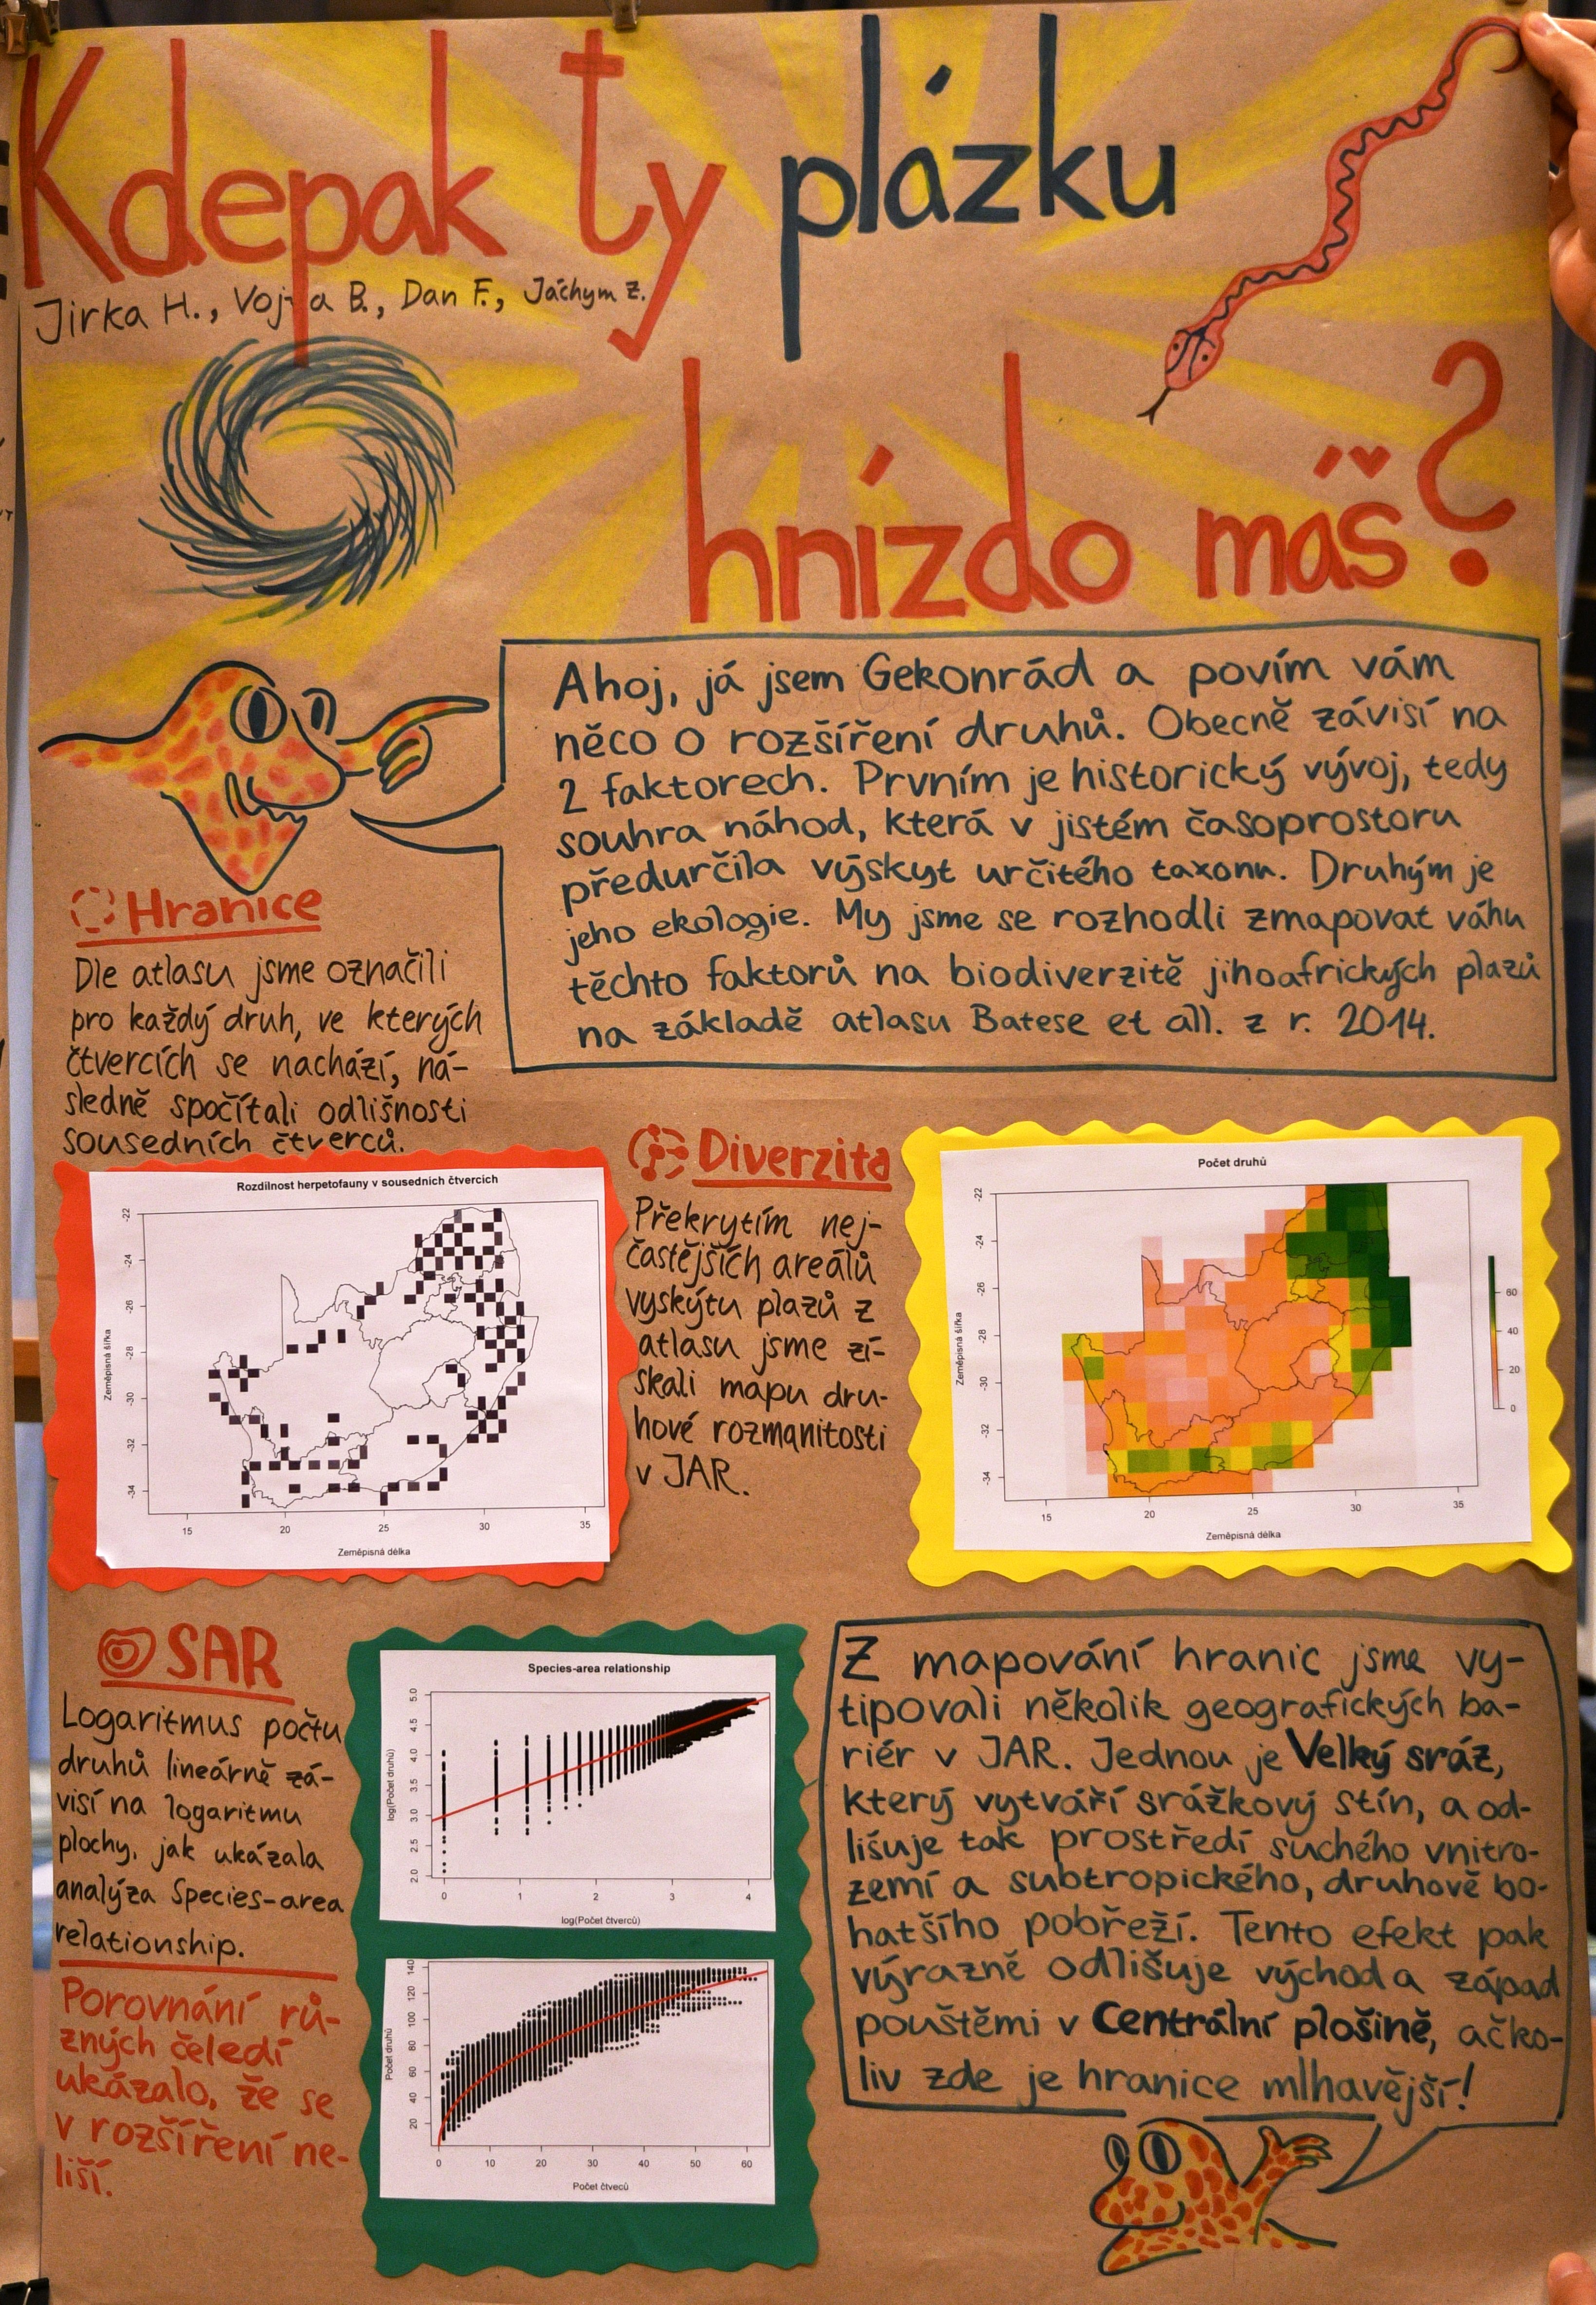 Kdepak ty plázku
hnízdo máš?
Jirka H., Vojta B., Dan F., Jáchym Z.
Ahoj, já jsem Gekonrád a povím vám
něco o rozšíření druhů. Obecně závisí na
2 faktorech. Prvním je historický vývoj, tedy
souhra náhod, která v jistém časoprostoru
předurčila výskyt určitého taxonu. Druhým je
jeho ekologie. My jsme se rozhodli zmapovat váhu
těchto faktorů na biodiverzitě jihoafrických plazů
na základě atlasu Batese et all. z r. 2014.
Hranice
Dle atlasu jsme označili
pro každý druh, ve kterých
čtvercích se nachází, ná-
sledně spočítali odlišnosti
sousedních čtverců.
Rozdílnost herpetofauny v sousedních čtvercích
Zeměpisná šířka
-22
-24
-26
-28
-30
-32
-34
15 20 25 30 35
Zeměpisná délka
Diverzita
Překrytím nej-
častějších areálů
vyskýtu plazů z
atlasu jsme zí-
skali mapu dru-
hové rozmanitosti
v JAR.
Počet druhů
Zeměpisná šířka
-22
-24
-26
-28
-30
-32
-34
15 20 25 30 35
Zeměpisná délka
60
40
20
0
SAR
Logaritmus počtu
druhů lineárně zá-
visí na logaritmu
plochy, jak ukázala
analýza Species-area
relationship.
Porovnání rů-
zných čeledí
ukázalo, že se
v rozšíření ne-
liší.
Species-area relationship
log(Počet druhů)
5.0
4.5
4.0
3.5
3.0
2.5
2.0
0 1 2 3 4
log(Počet čtverců)
Počet druhů
140
120
100
80
60
40
20
0 10 20 30 40 50 60
Počet čtveců
Z mapování hranic jsme vy-
tipovali několik geografických ba-
riér v JAR. Jednou je Velký sráz,
který vytváří srážkový stín, a od-
lišuje tak prostředí suchého vnitro-
zemí a subtropického, druhově bo-
hatšího pobřeží. Tento efekt pak
výrazně odlišuje východ a západ
pouštěmi v Centrální plošině, ačko-
liv zde je hranice mlhavější!